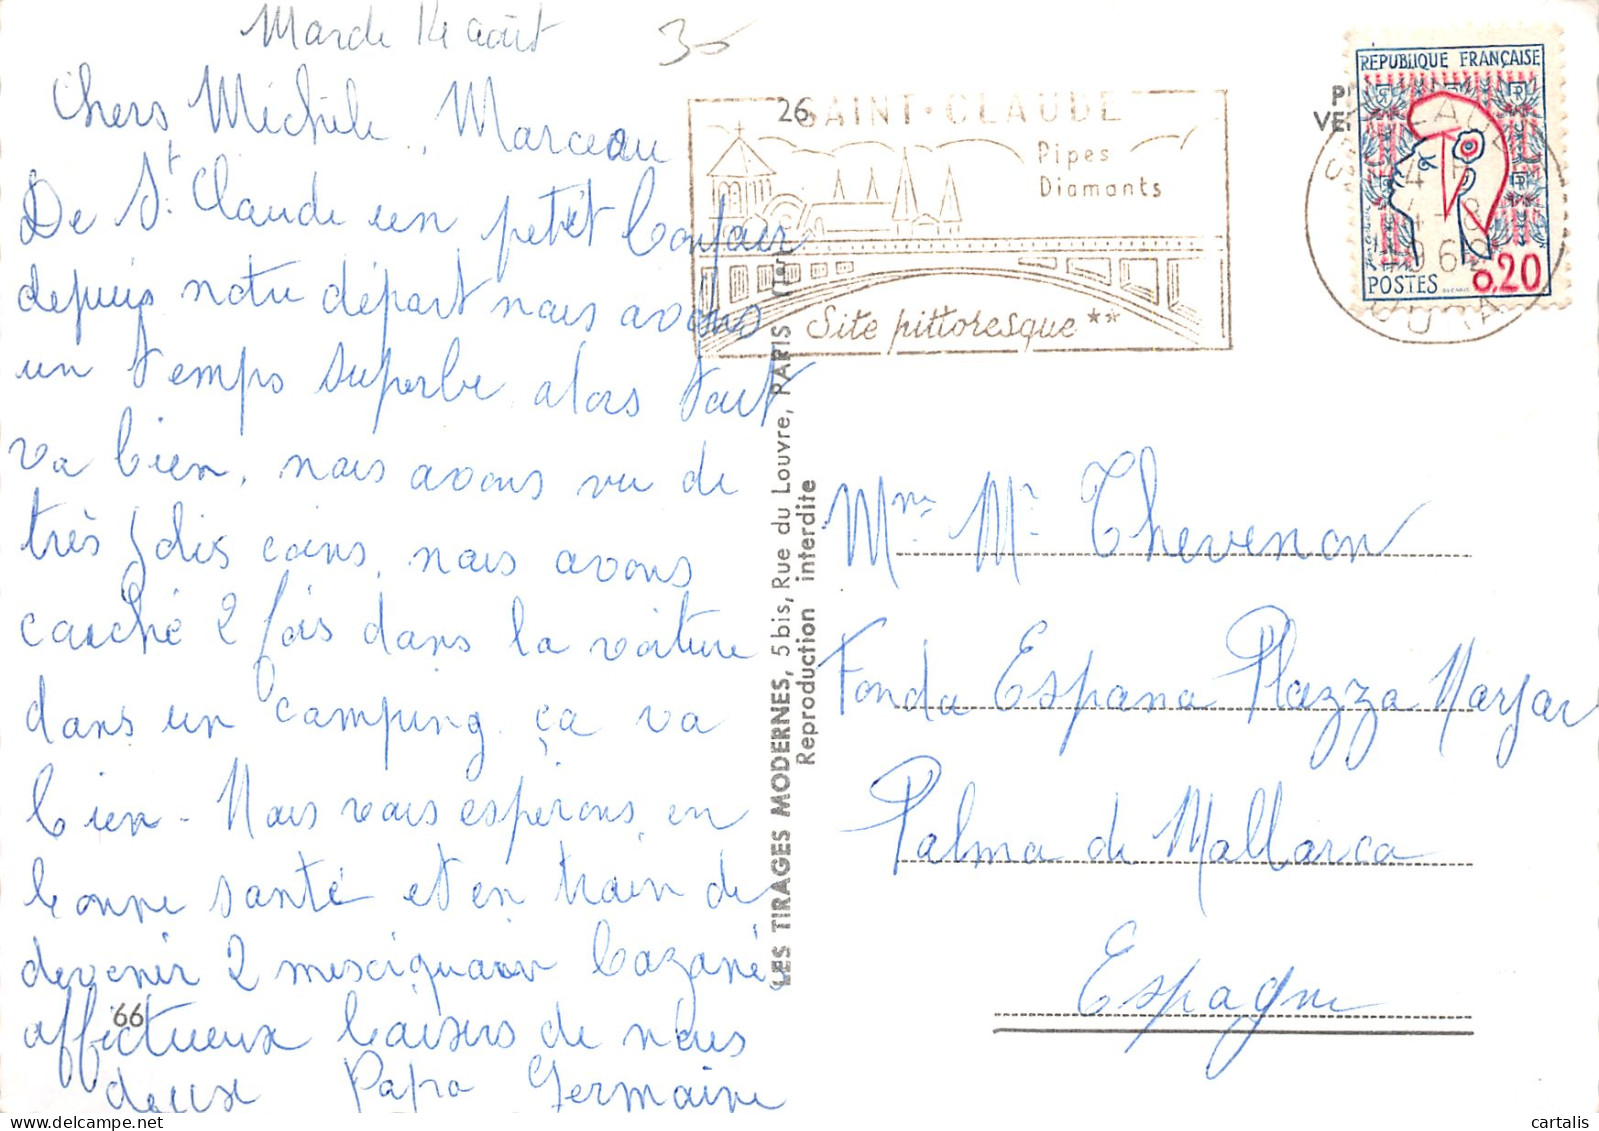 Mardi 14 août
35
Chers Michèle, Marceau
De St Claude un petit bonjour
depuis notre départ nous avons
un temps superbe alors tout
va bien, nous avons vu de
très jolis coins, nous avons
couché 2 fois dans la voiture
dans un camping ça va
bien - Nous vous espérons en
bonne santé et en train de
devenir 2 bazanés
affectueux baisers de nous
deux Papa Germaine
66
26
SAINT-CLAUDE
Pipes
Diamants
Site pittoresque **
RÉPUBLIQUE FRANÇAISE
POSTES 0,20
JURA
LES TIRAGES MODERNES, 5 bis, Rue du Louvre, PARIS
Reproduction interdite
Mme Mr Thevenon
Fonda Espana Plazza
Palma de Mallorca
Espagne
cartalis